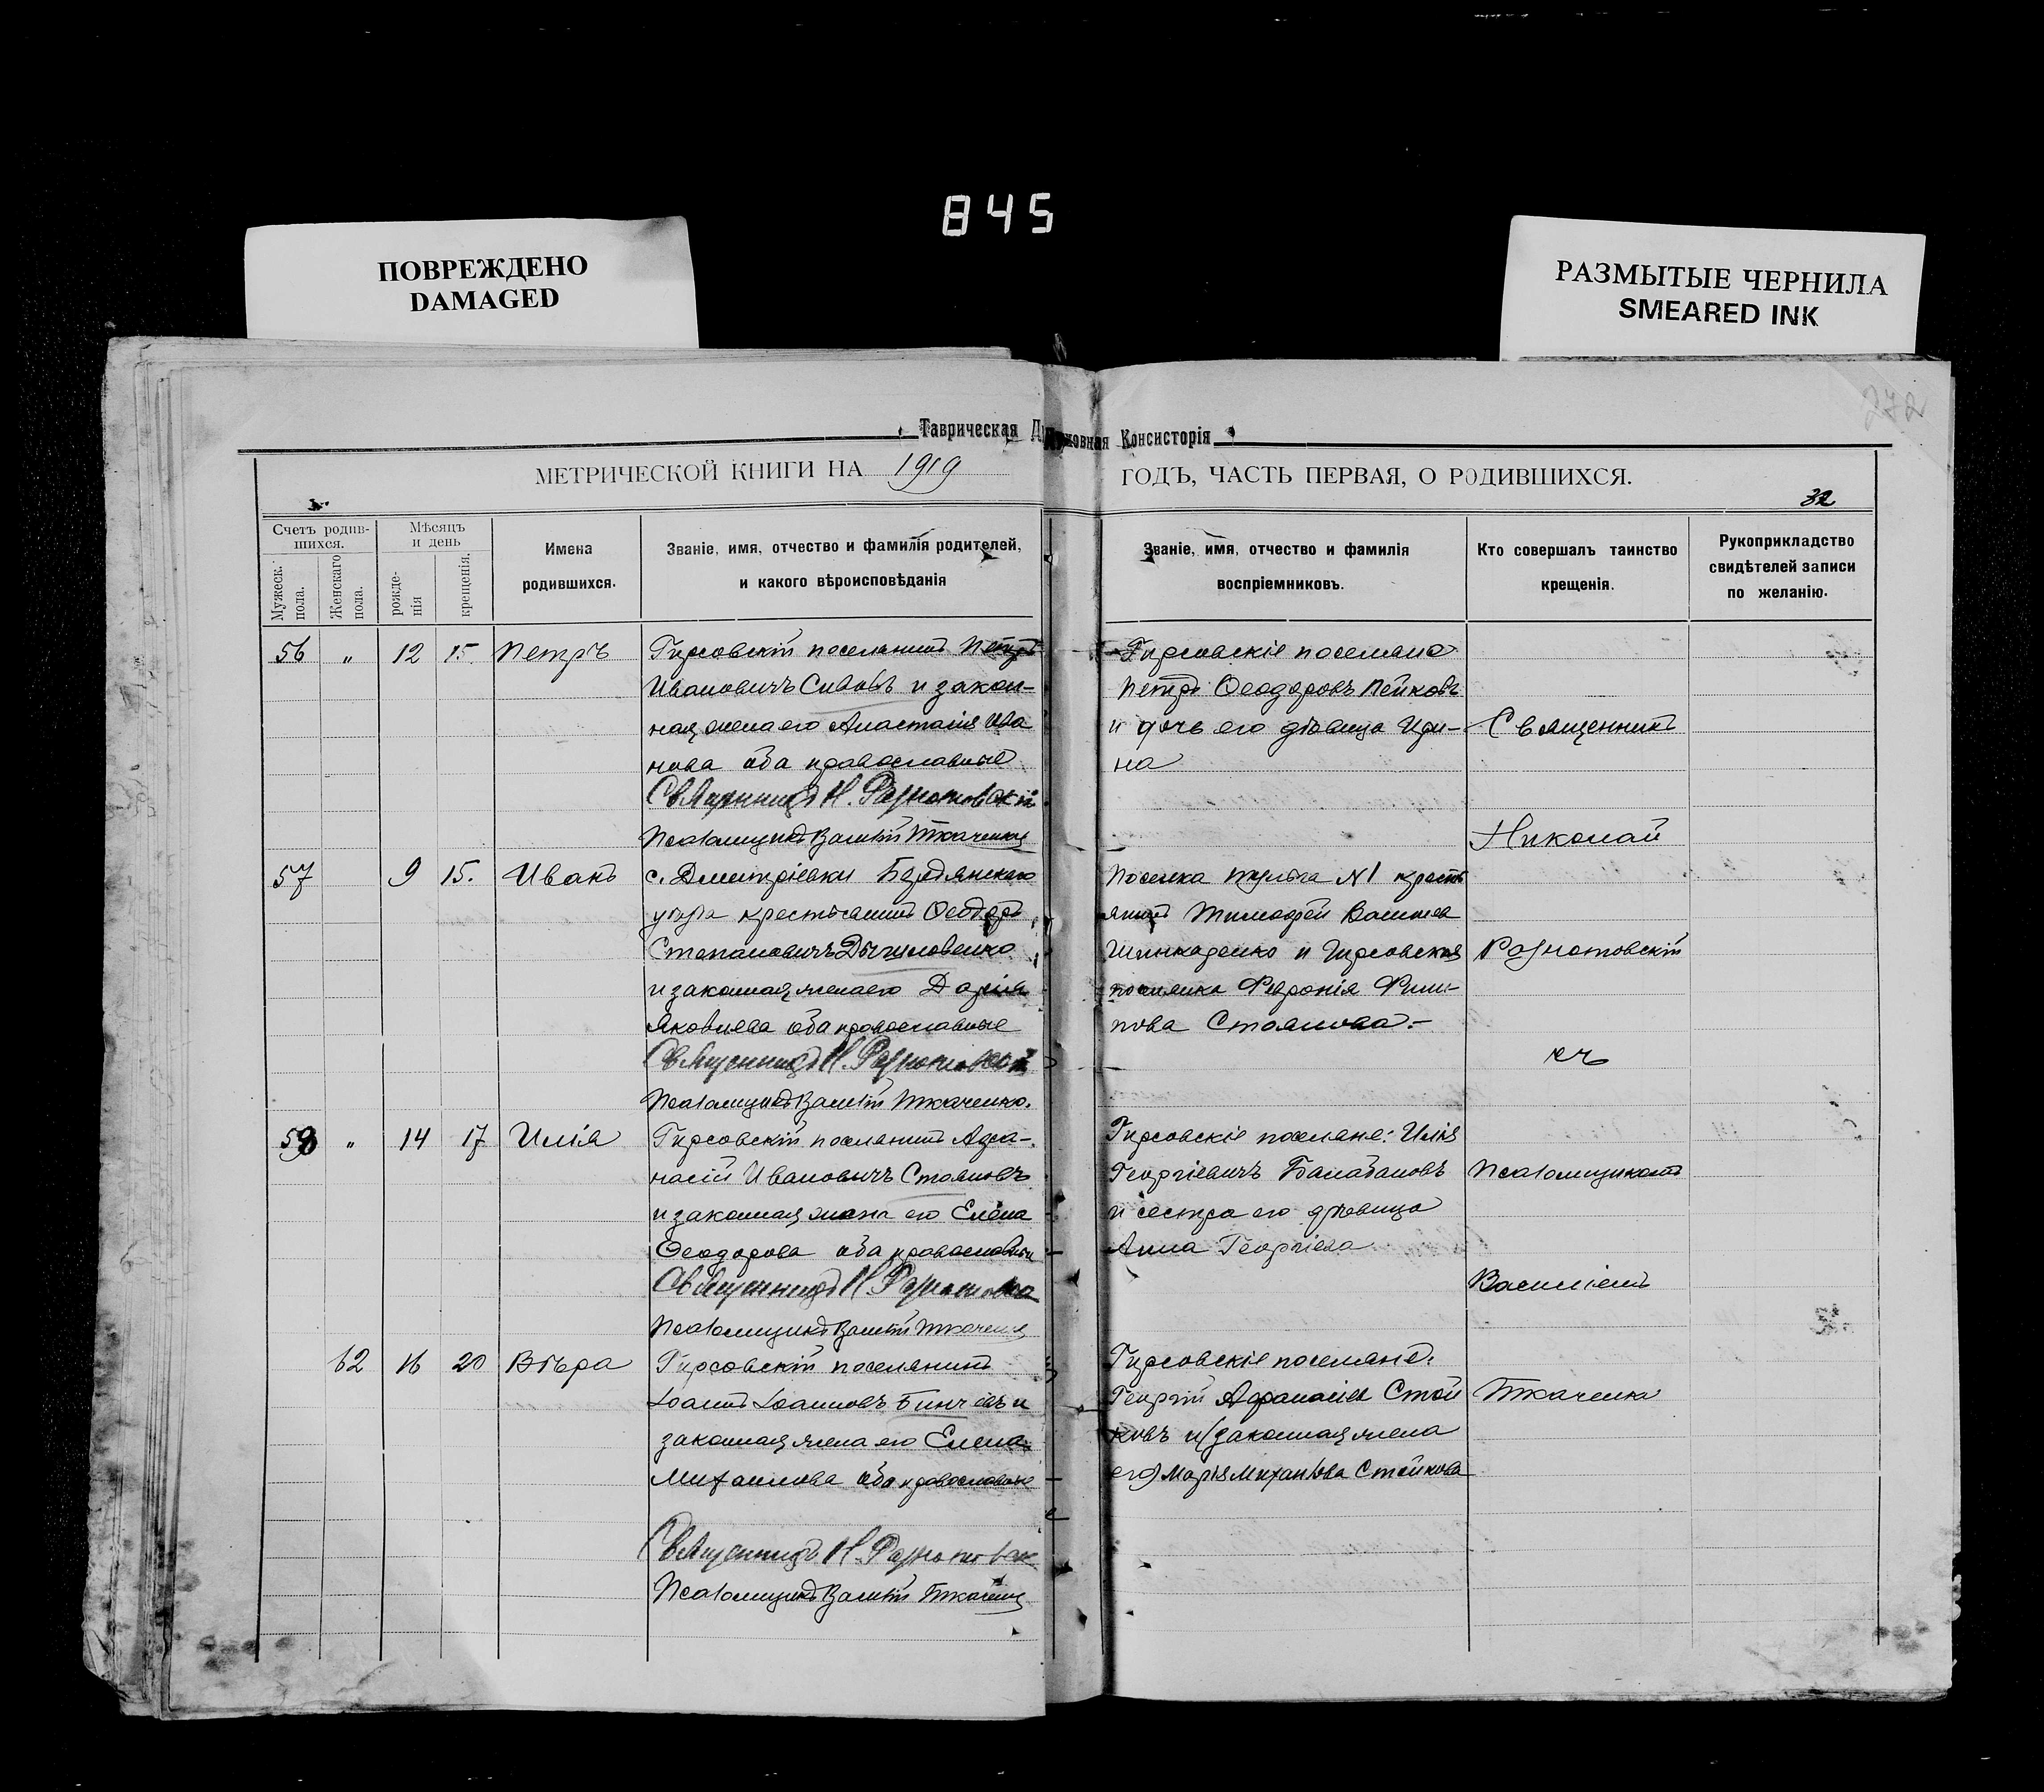 845
ПОВРЕЖДЕНО
DAMAGED
РАЗМЫТЫЕ ЧЕРНИЛА
SMEARED INK
272
Таврическая Духовная Консисторія
МЕТРИЧЕСКОЙ КНИГИ НА 1919
ГОДЪ, ЧАСТЬ ПЕРВАЯ, О РОДИВШИХСЯ.
32
Счетъ родив-
шихся.
Мужеск. пола.
Женскаго пола.
Мѣсяцъ
и день
рожде-
нія
крещенія.
Имена
родившихся.
Званіе, имя, отчество и фамилія родителей,
и какого вѣроисповѣданія
Званіе, имя, отчество и фамилія
воспріемниковъ.
Кто совершалъ таинство
крещенія.
Рукоприкладство
свидѣтелей записи
по желанію.
56 " 12 15. Петръ
Гирсовскій поселянинъ Петръ
Ивановичъ Сивовъ и закон-
ная жена его Анастасія Ива
нова оба православные
Священникъ Н. Разнотовскій
Псаломщикъ Василій Ткаченко
Гирсовскіе поселяне
Петръ Ѳеодоровъ Пейковъ
и дочь его дѣвица Ири-
на
57 9 15. Иванъ
с. Дмитріевки Бердянскаго
уѣзда крестьянинъ Ѳеодоръ
Степановичъ
и законная жена его Дарія
Яковлева оба православные
Священникъ Н. Разнотовскій
Псаломщикъ Василій Ткаченко.
Поселка №1 кресть
янинъ Тимофей Васильев
и Гирсовская
поселянка Феронія Филип-
пова Стоянова.-
58 " 14 17 Илія
Гирсовскій поселянинъ Афа-
насій Ивановичъ Стояновъ
и законная жена его Елена
Ѳеодорова оба православные
Священникъ Н. Разнотовск
Псаломщикъ Василій Ткаченко
Гирсовскіе поселяне: Илія
Георгіевичъ Балабановъ
и сестра его дѣвица
Анна Георгіева
62 16 20 Вѣра
Гирсовскій поселянинъ
Іоаннъ Іоанновъ Бинчевъ и
законная жена его Елена
Михаилова оба православные
Священникъ Н. Разнотовск
Псаломщикъ Василій Ткаченко
Гирсовскіе поселяне:
Георгій Афанасіев Стой
ковъ и (законная жена
его) Марія Михайлова Стойкова
Священникъ
Николай
Разнотовскій
съ
Псаломщикомъ
Василіемъ
Ткаченко